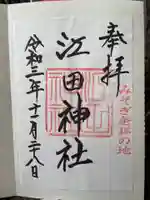 奉拝
みそぎ発祥の地
江田神社
令和三年十一月二十八日